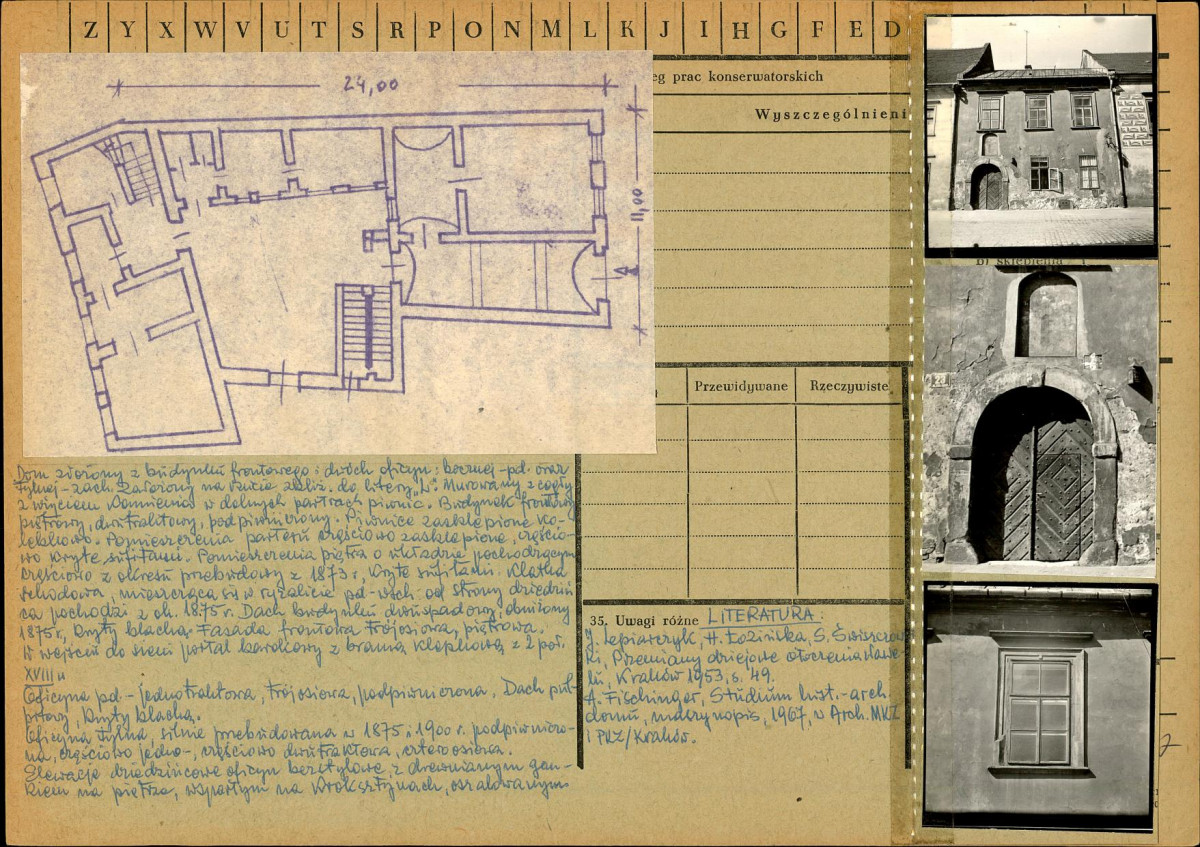 Z Y X W V U T S R P O N M L K J I H G F E D
24,00
11,00
eg prac konserwatorskich
Wyszczególnieni
b) sklepienia
23
Przewidywane Rzeczywiste
Dom złożony z budynku frontowego i dwóch oficyn: bocznej-pd. oraz
tylnej-zach. Założony na rzucie zbliż. do litery „L". Murowany z cegły
z użyciem kamienia w dolnych partiach piwnic. Budynek frontowy
piętrowy, dwutraktowy, podpiwniczony. Piwnice zasklepione ko-
lebkowo. Pomieszczenia parteru częściowo zasklepione, częścio-
wo kryte sufitami. Pomieszczenia piętra o układzie pochodzącym
częściowo z okresu przebudowy z 1873 r, kryte sufitami. Klatka
schodowa, mieszcząca się w ryzalicie pd-wsch. od strony dziedziń
ca pochodzi z ok. 1875 r. Dach budynku dwuspadowy obniżony
1875 r, kryty blachą. Fasada frontowa trójosiowa, piętrowa.
W wejściu do sieni portal barokowy z bramą klepkową z 2 poł.
XVIII w
Oficyna pd-jednotraktowa, trójosiowa, podpiwniczona. Dach pul-
pitowy, kryty blachą.
Oficyna tylna, silnie przebudowana w 1875 i 1900 r. podpiwniczo-
na, częściowo jedno-, częściowo dwutraktowa, czteroosiowa.
Elewacje dziedzińcowe oficyn bezstylowe, z drewnianym gan-
kiem na piętrze, wspartym na kroksztynach, oszalowanym
35. Uwagi różne LITERATURA:
J. Lepiarczyk, H. Łozińska, S. Świszczow
ki, Przemiany dziejowe otoczenia Wawe-
lu, Kraków 1953, s. 49.
A. Fischinger, Studium hist.-arch.
domu, maszynopis, 1967, w Arch. MKZ
i PKZ/Kraków.